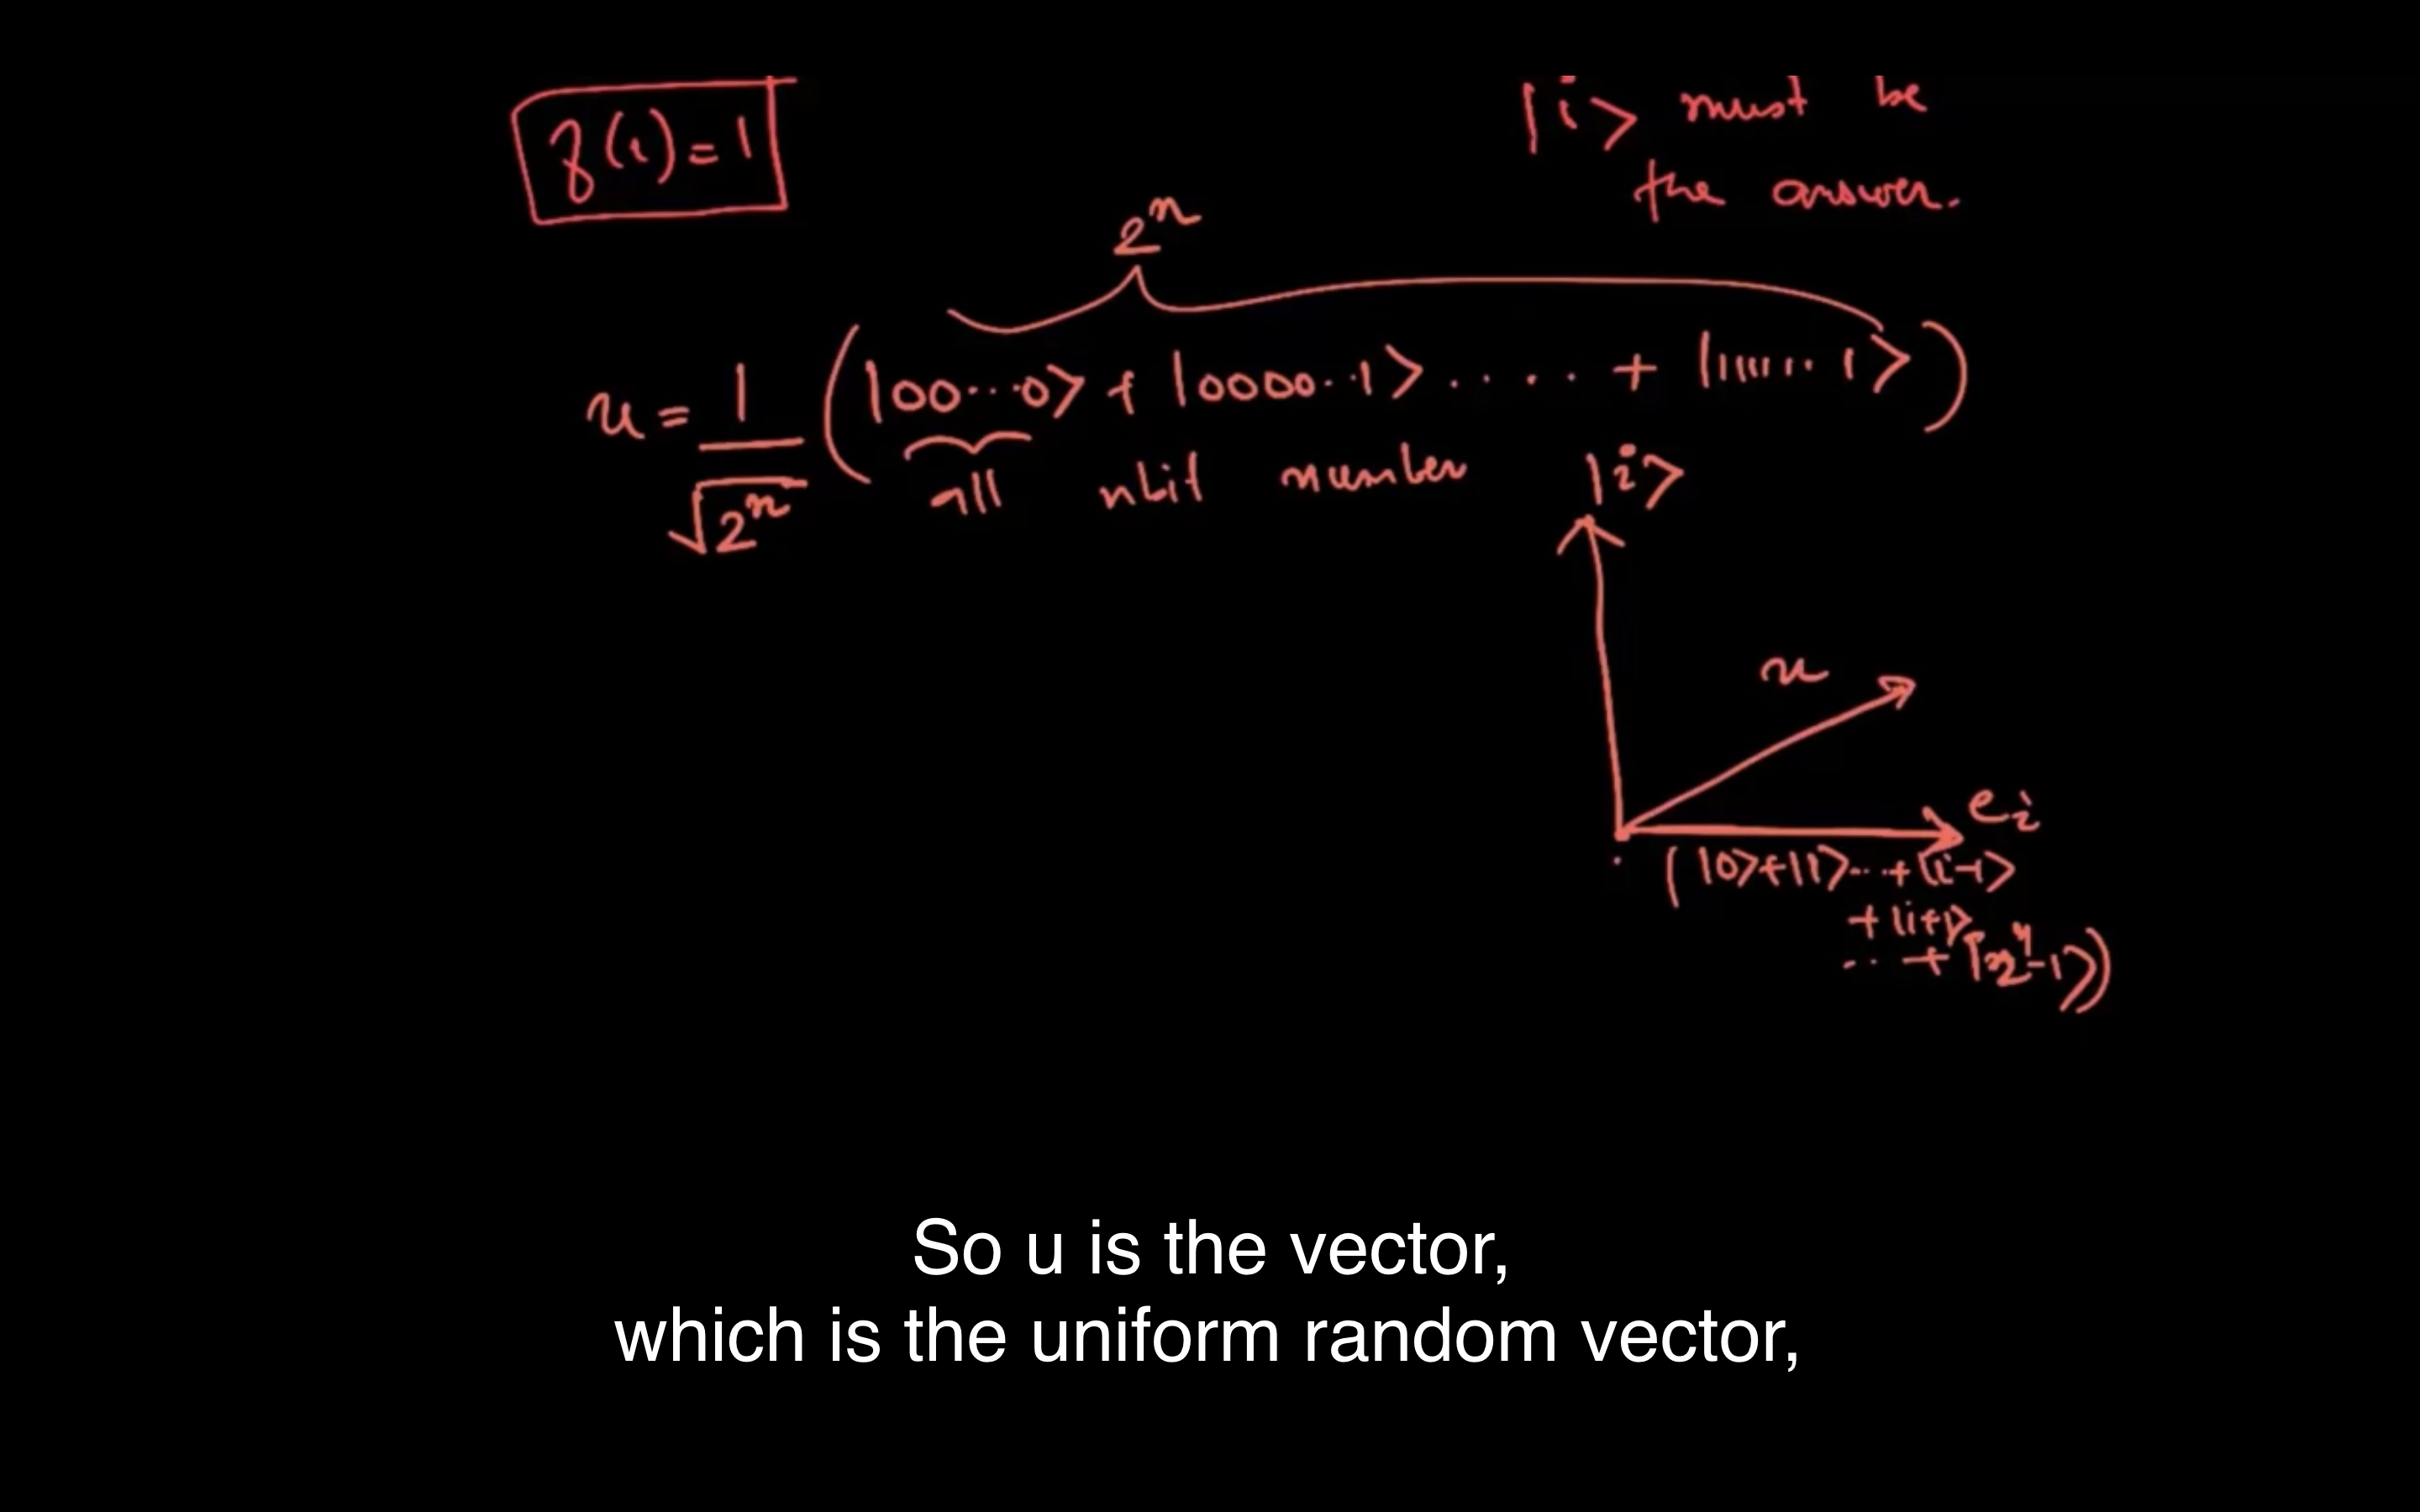 f(i)=1
|i> must be
the answer.
2^n
u = 1/√2^n (|00...0> + |0000..1> .... + |111111...1>)
all nbit number
|i>
u
e_i
(|0>+|1>...+|i-1>
+|i+1>
...+|2^n-1>)
So u is the vector,
which is the uniform random vector,